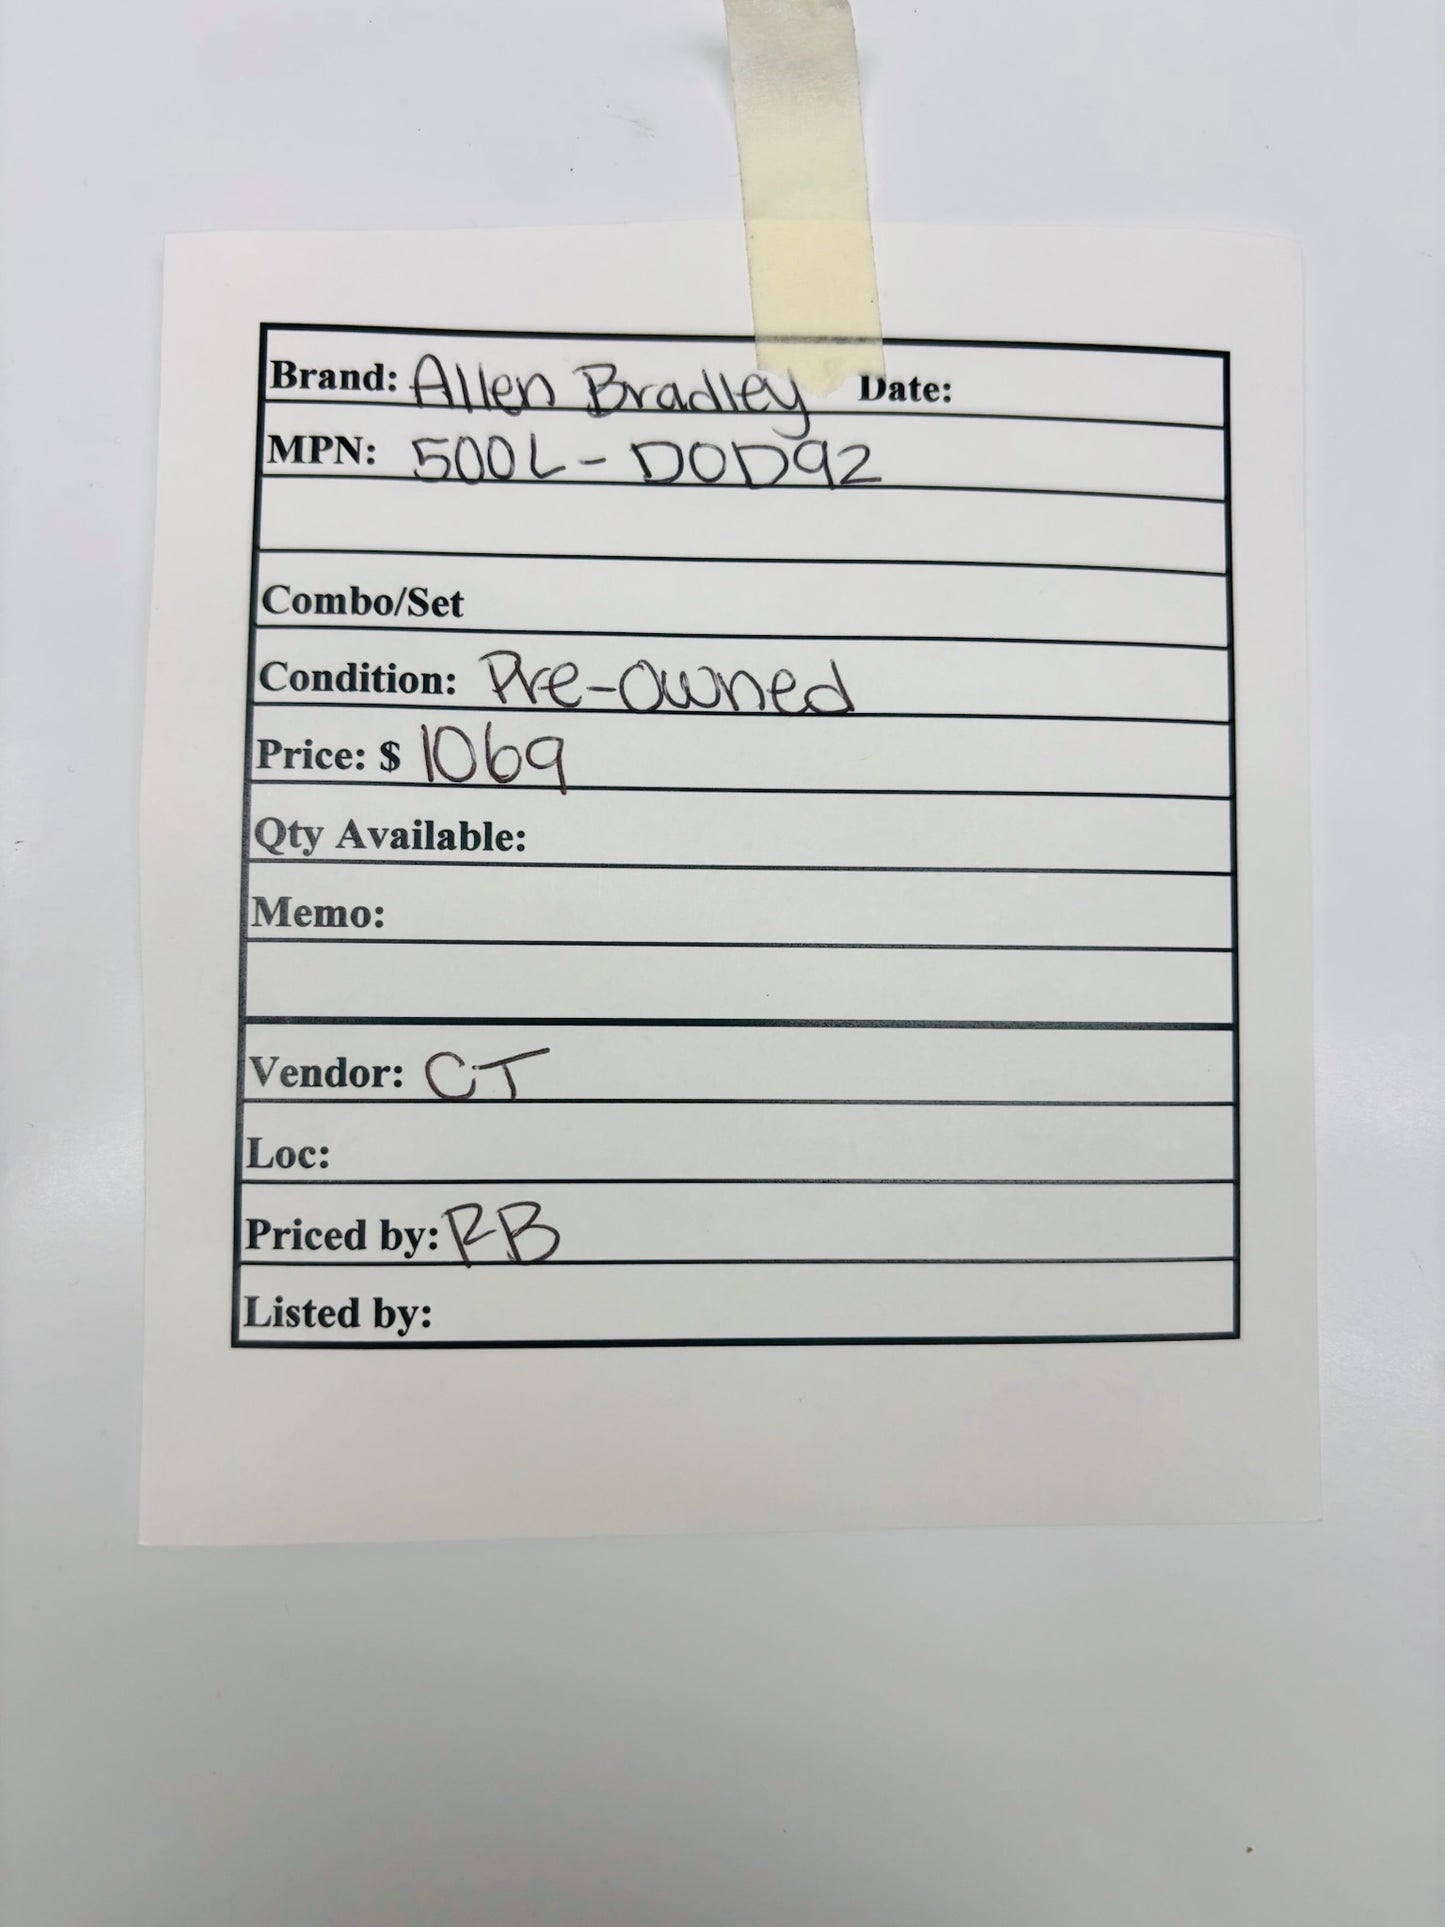 Brand: Allen Bradley Date:
MPN: 500L-DOD92
Combo/Set
Condition: Pre-owned
Price: $ 1069
Qty Available:
Memo:
Vendor: CT
Loc:
Priced by: RB
Listed by: